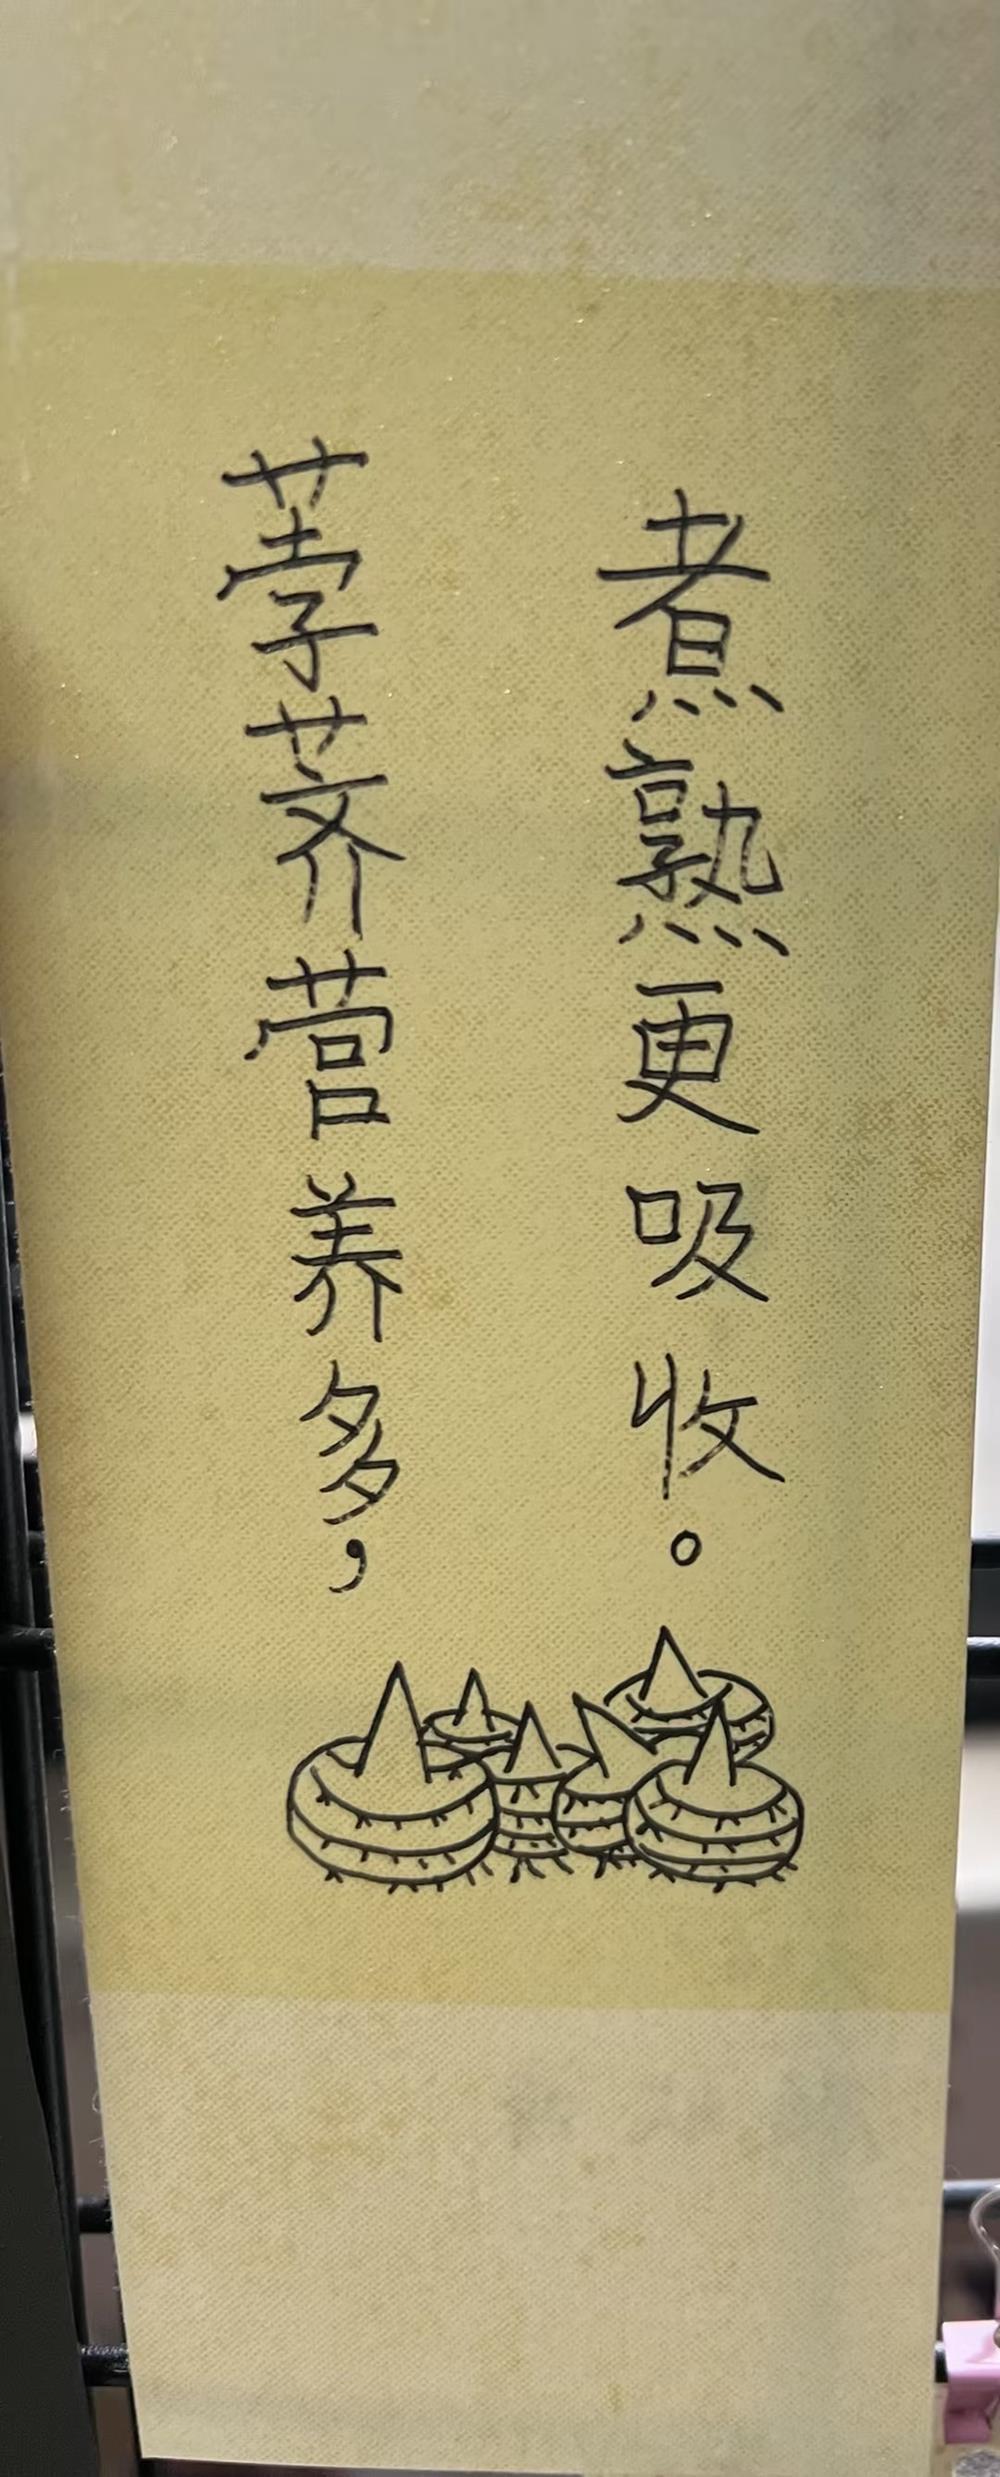 荸荠营养多，
煮熟更吸收。